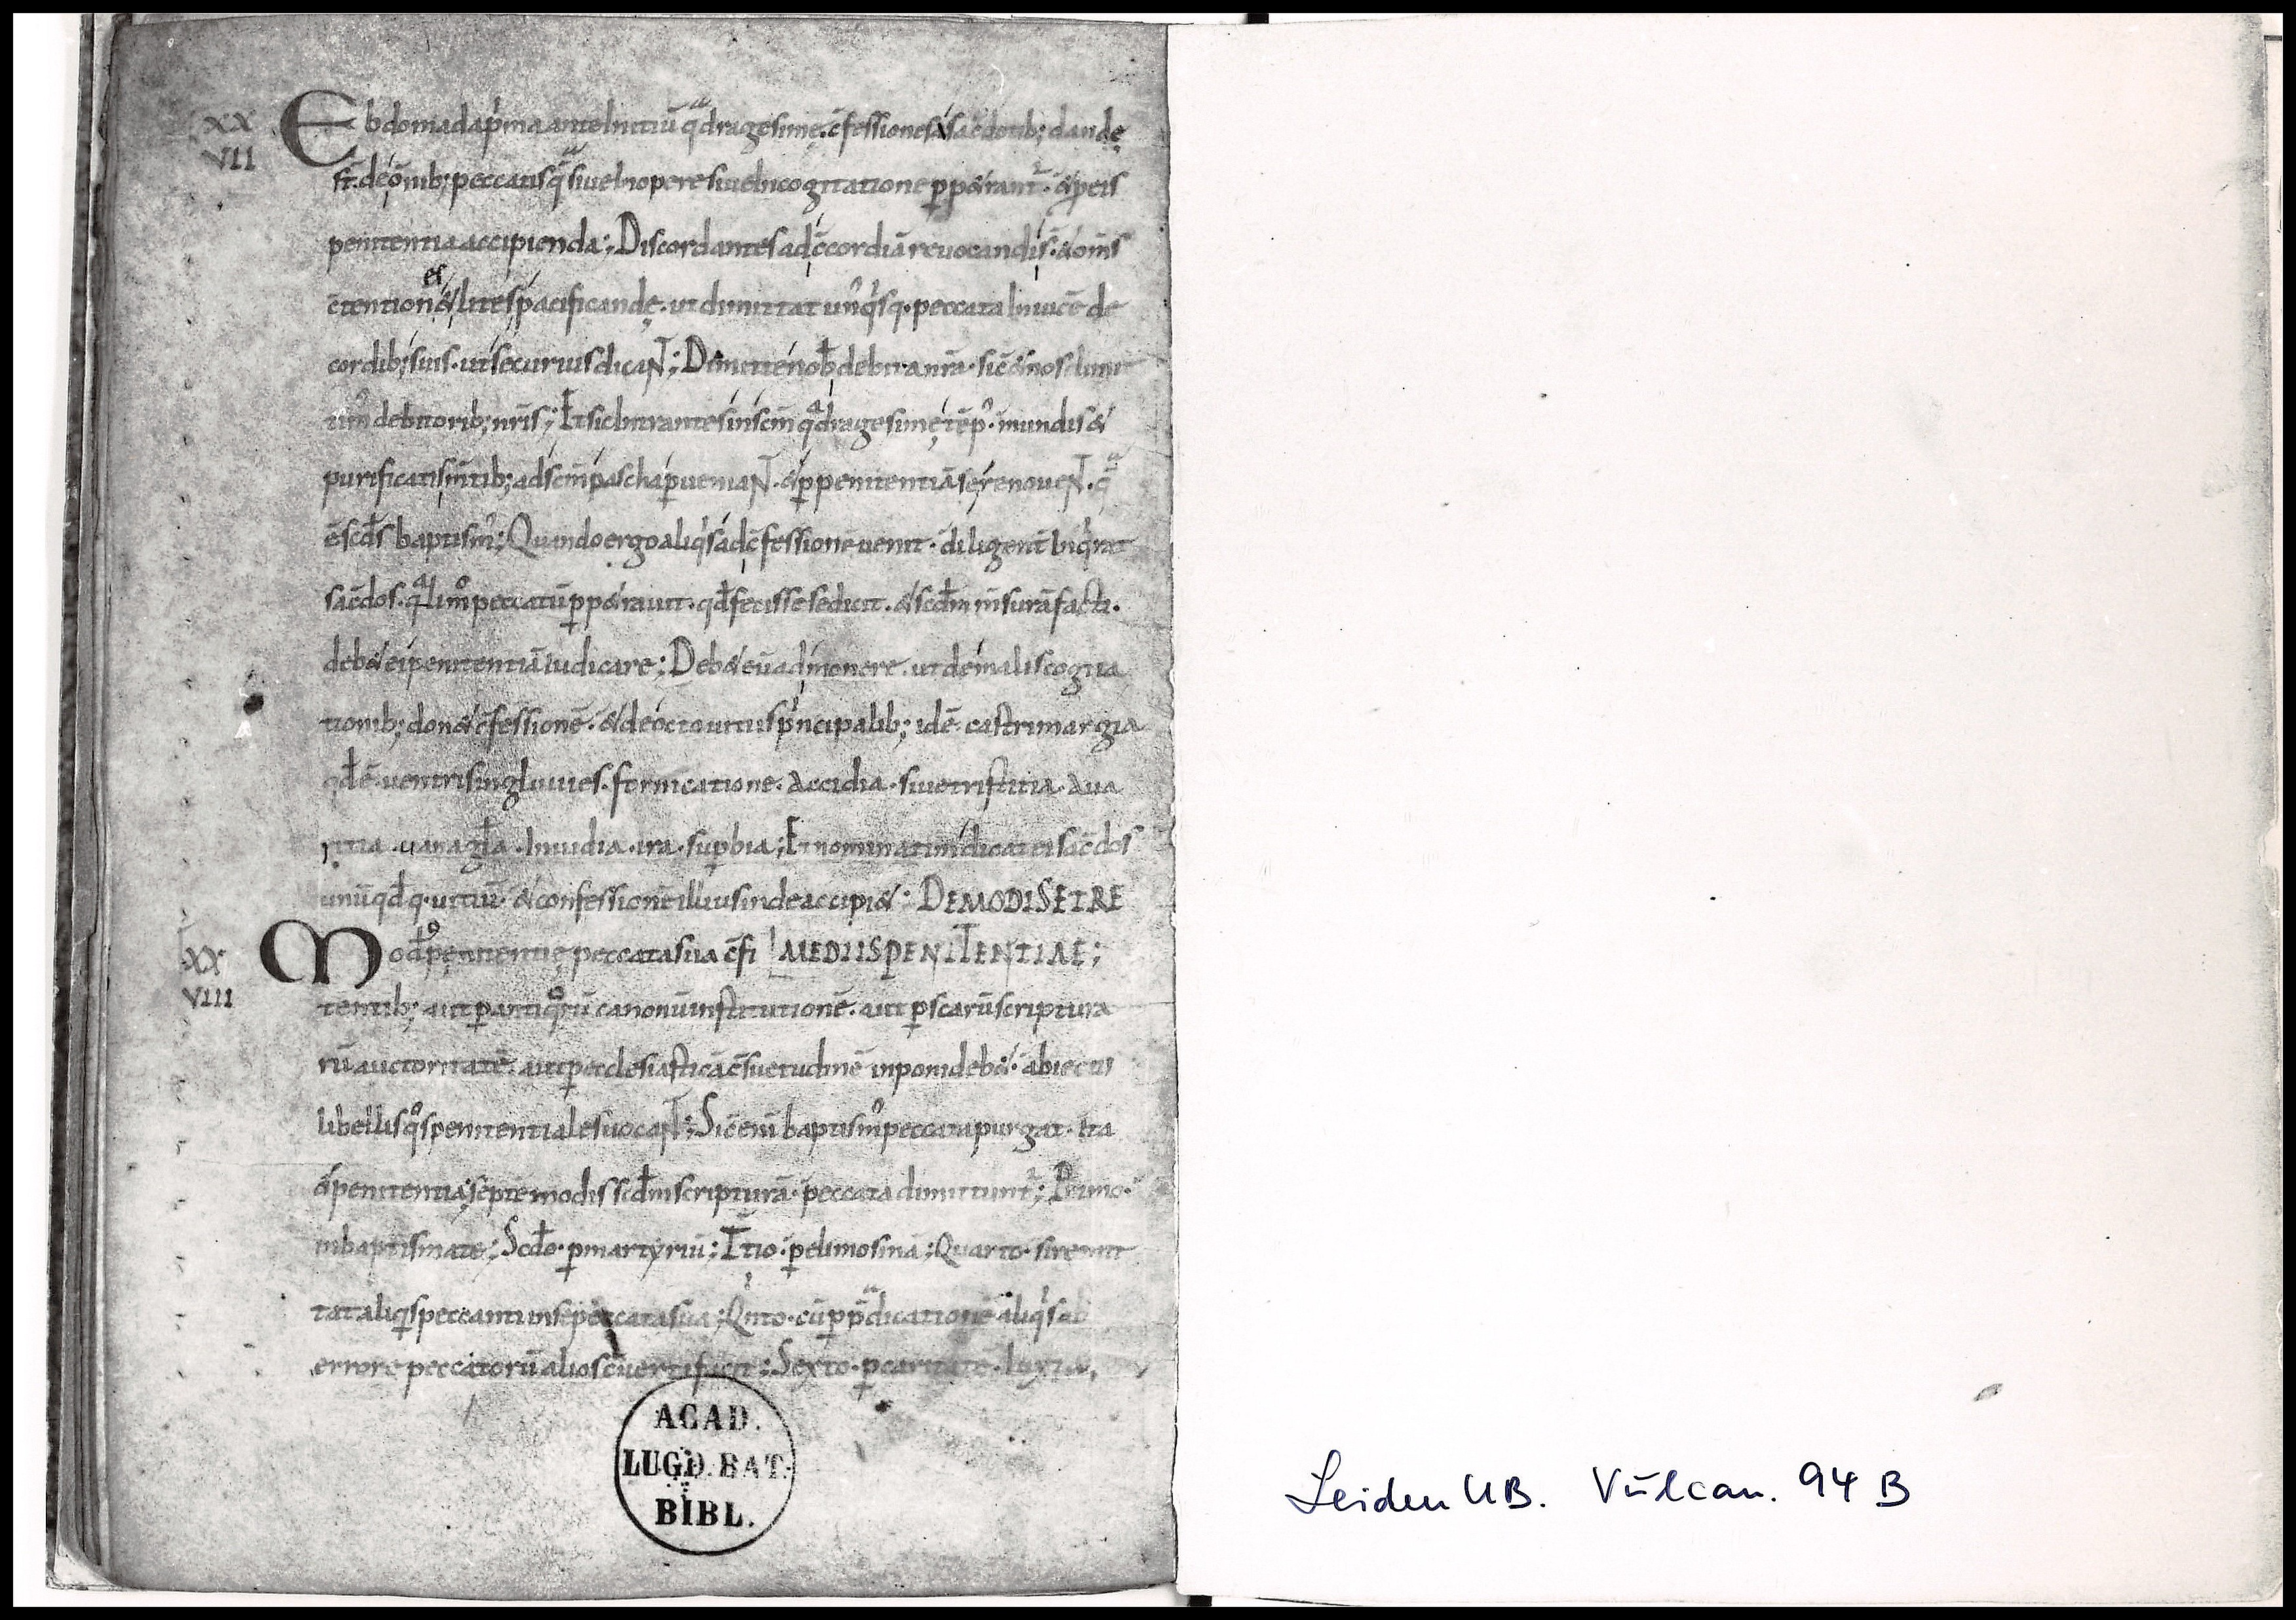 XX
VII
Ebdomada p'ma ante Initiū q̄dragesimę. c̄fessiones sac̄dotib; dandę
st̄. de om̄ib; peccatis q̄ siue In opere siue In cogitatione ꝑpetrant᷑. & ꝑ eis
penitentia accipienda; Discordantes ad c̄cordiā reuocandi s̄. & om̄s
c̄tentiones & lites pacificandę. ut dimittat unꝰq'sq. peccata Inuicē de
cordib; suis. ut securius dicaNT; Dimitte nob̄ debita nr̄a. sic̄ & nos dimit
timꝰ debitorib; nr̄is; Et sic Intrantes in sc̄m q̄dragesimę tēpꝰ. mundis &
purificatis m̄tib; ad sc̄m pascha ꝑueniaNT. & ꝑ penitentiā se renoueNT. q̄
ē sc̄ds baptismꝰ; Quando ergo aliq's ad c̄fessionē uenit. diligent̄ Inq'rat
sac̄dos. q̄lim̊ peccatū ꝑpetrauit. qd̄ fecisse se dicit. & scd̄m m̄surā facti.
debet ei penitentiā iudicare; Debet eū admonere. ut de malis cogita
tionib; donet c̄fessionē. & de octo uitiis p'ncipalib; idē castrimargia
qd̄ ē uentris ingluuies. fornicatione. Accidia. siue tristitia. Aua
ritia. uana gl̄a. Inuidia. ira. suꝑbia; Et nominatim dicat ei sac̄dos
unū qd̄q. uitiū. & confessionē illius inde accipiet; DE MODIS ET RE
XX
VIII
Modꝰ penitentię peccata sua c̄fi MEDIIS PENITENTIAE;
tentib; aut ꝑ antiq̊rū canonū institutionē. aut ꝑ sc̄arū scriptura
rū auctoritatē. aut ꝑ ecclesiasticā c̄suetudinē inponi debet. abiectis
libellis q̊s penitentiales uocaNT; Sic̄ eni baptismꝰ peccata purgat. Ita
& penitentia; septē modis scd̄m scripturā. peccata dimittunt᷑; Primo.
in baptismate; Scd̄o. ꝑ martyriū; T̄tio. ꝑ elimosinā; Quarto. si remit
tat aliq's peccanti in se peccata sua; Q'nto. cū ꝑ p̄dicationē aliq's ab
errore peccatorū alios c̄uerti fecit; Sexto. ꝑ caritatē. Iuxta.
ACAD.
LUGD. BAT.
BIBL.
Leiden UB. Vulcan. 94 B